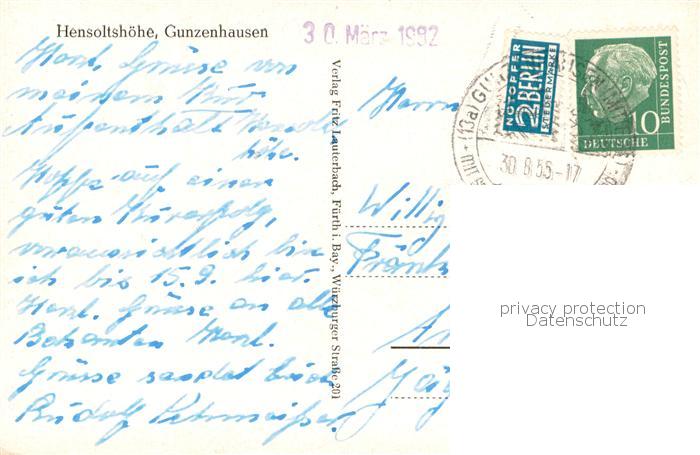 Hensoltshöhe, Gunzenhausen
30. März 1992
Herzl. Grüsse von
meinem Kur
Aufenthalt Hensolt
höhe.
Hoffe auf einen
guten Kurerfolg,
voraussichtlich bin
ich bis 15.9. hier.
Herzl. Grüsse an alle
Bekannten Herzl.
Grüsse sendet Euer
Rudolf
Verlag Fritz Lauterbach, Fürth i. Bay., Würzburger Straße 201
Herrn
Willy
NOTOPFER
2 BERLIN
STEUERMARKE
10
DEUTSCHE
BUNDESPOST
(13a)
30.8.55.-17
privacy protection
Datenschutz